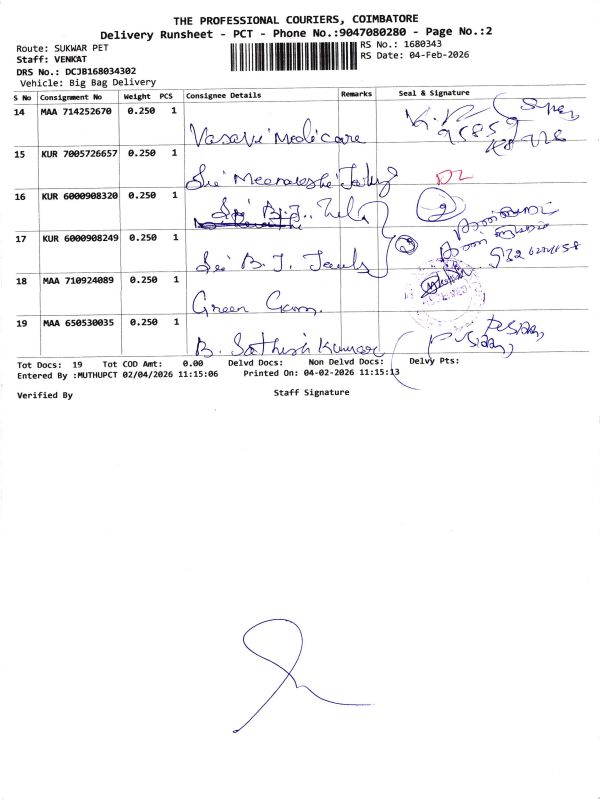 THE PROFESSIONAL COURIERS, COIMBATORE
Delivery Runsheet - PCT - Phone No.:9047080280 - Page No.:2
Route: SUKWAR PET
RS No.: 1680343
Staff: VENKAT
RS Date: 04-Feb-2026
DRS No.: DCJB168034302
Vehicle: Big Bag Delivery
S No Consignment No Weight PCS Consignee Details Remarks Seal & Signature
14 MAA 714252670 0.250 1 Vasavi Medicare
15 KUR 7005726657 0.250 1 Sri Meenakshi
DL
16 KUR 6000908320 0.250 1 Sri B.J.
2
17 KUR 6000908249 0.250 1 Sri B.J.
18 MAA 710924089 0.250 1 Green
19 MAA 650530035 0.250 1 B. Sathish Kumar
Tot Docs: 19 Tot COD Amt: 0.00 Delvd Docs: Non Delvd Docs: Delvy Pts:
Entered By :MUTHUPCT 02/04/2026 11:15:06 Printed On: 04-02-2026 11:15:13
Verified By Staff Signature